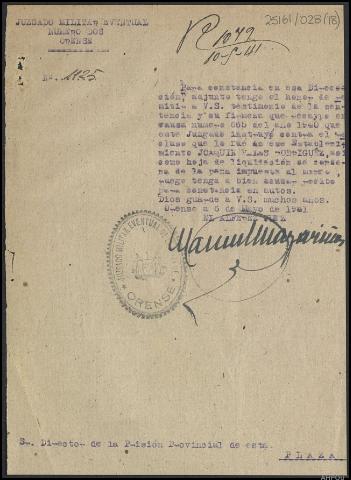 25161/028(18)
JUZGADO MILITAR EVENTUAL
NUMERO DOS
ORENSE
Rº 1072
10-5-41
Nº. 1125
Para constancia en esa Direc-
ción, adjunto tengo el honor de re-
mitir a V.S. testimonio de la sen-
tencia y su firmeza que recayó en
causa numero 665 del año 1940 que
este Juzgado instruyó contra el re-
cluso que lo fué de ese Estableci-
miento JOAQUIN RODRIGUEZ, así
como hoja de liquidación de conde-
na de la pena impuesta al mismo,
ruego tenga a bien acusar recibo
para constancia en autos.
Dios guarde a V.S. muchos años.
Orense a 6 de Mayo de 1941
EL ALFEREZ JUEZ
JUZGADO MILITAR EVENTUAL
ORENSE
Manuel Magariños
Sr. Director de la Prisión Provincial de esta.
PLAZA.
AHPOU